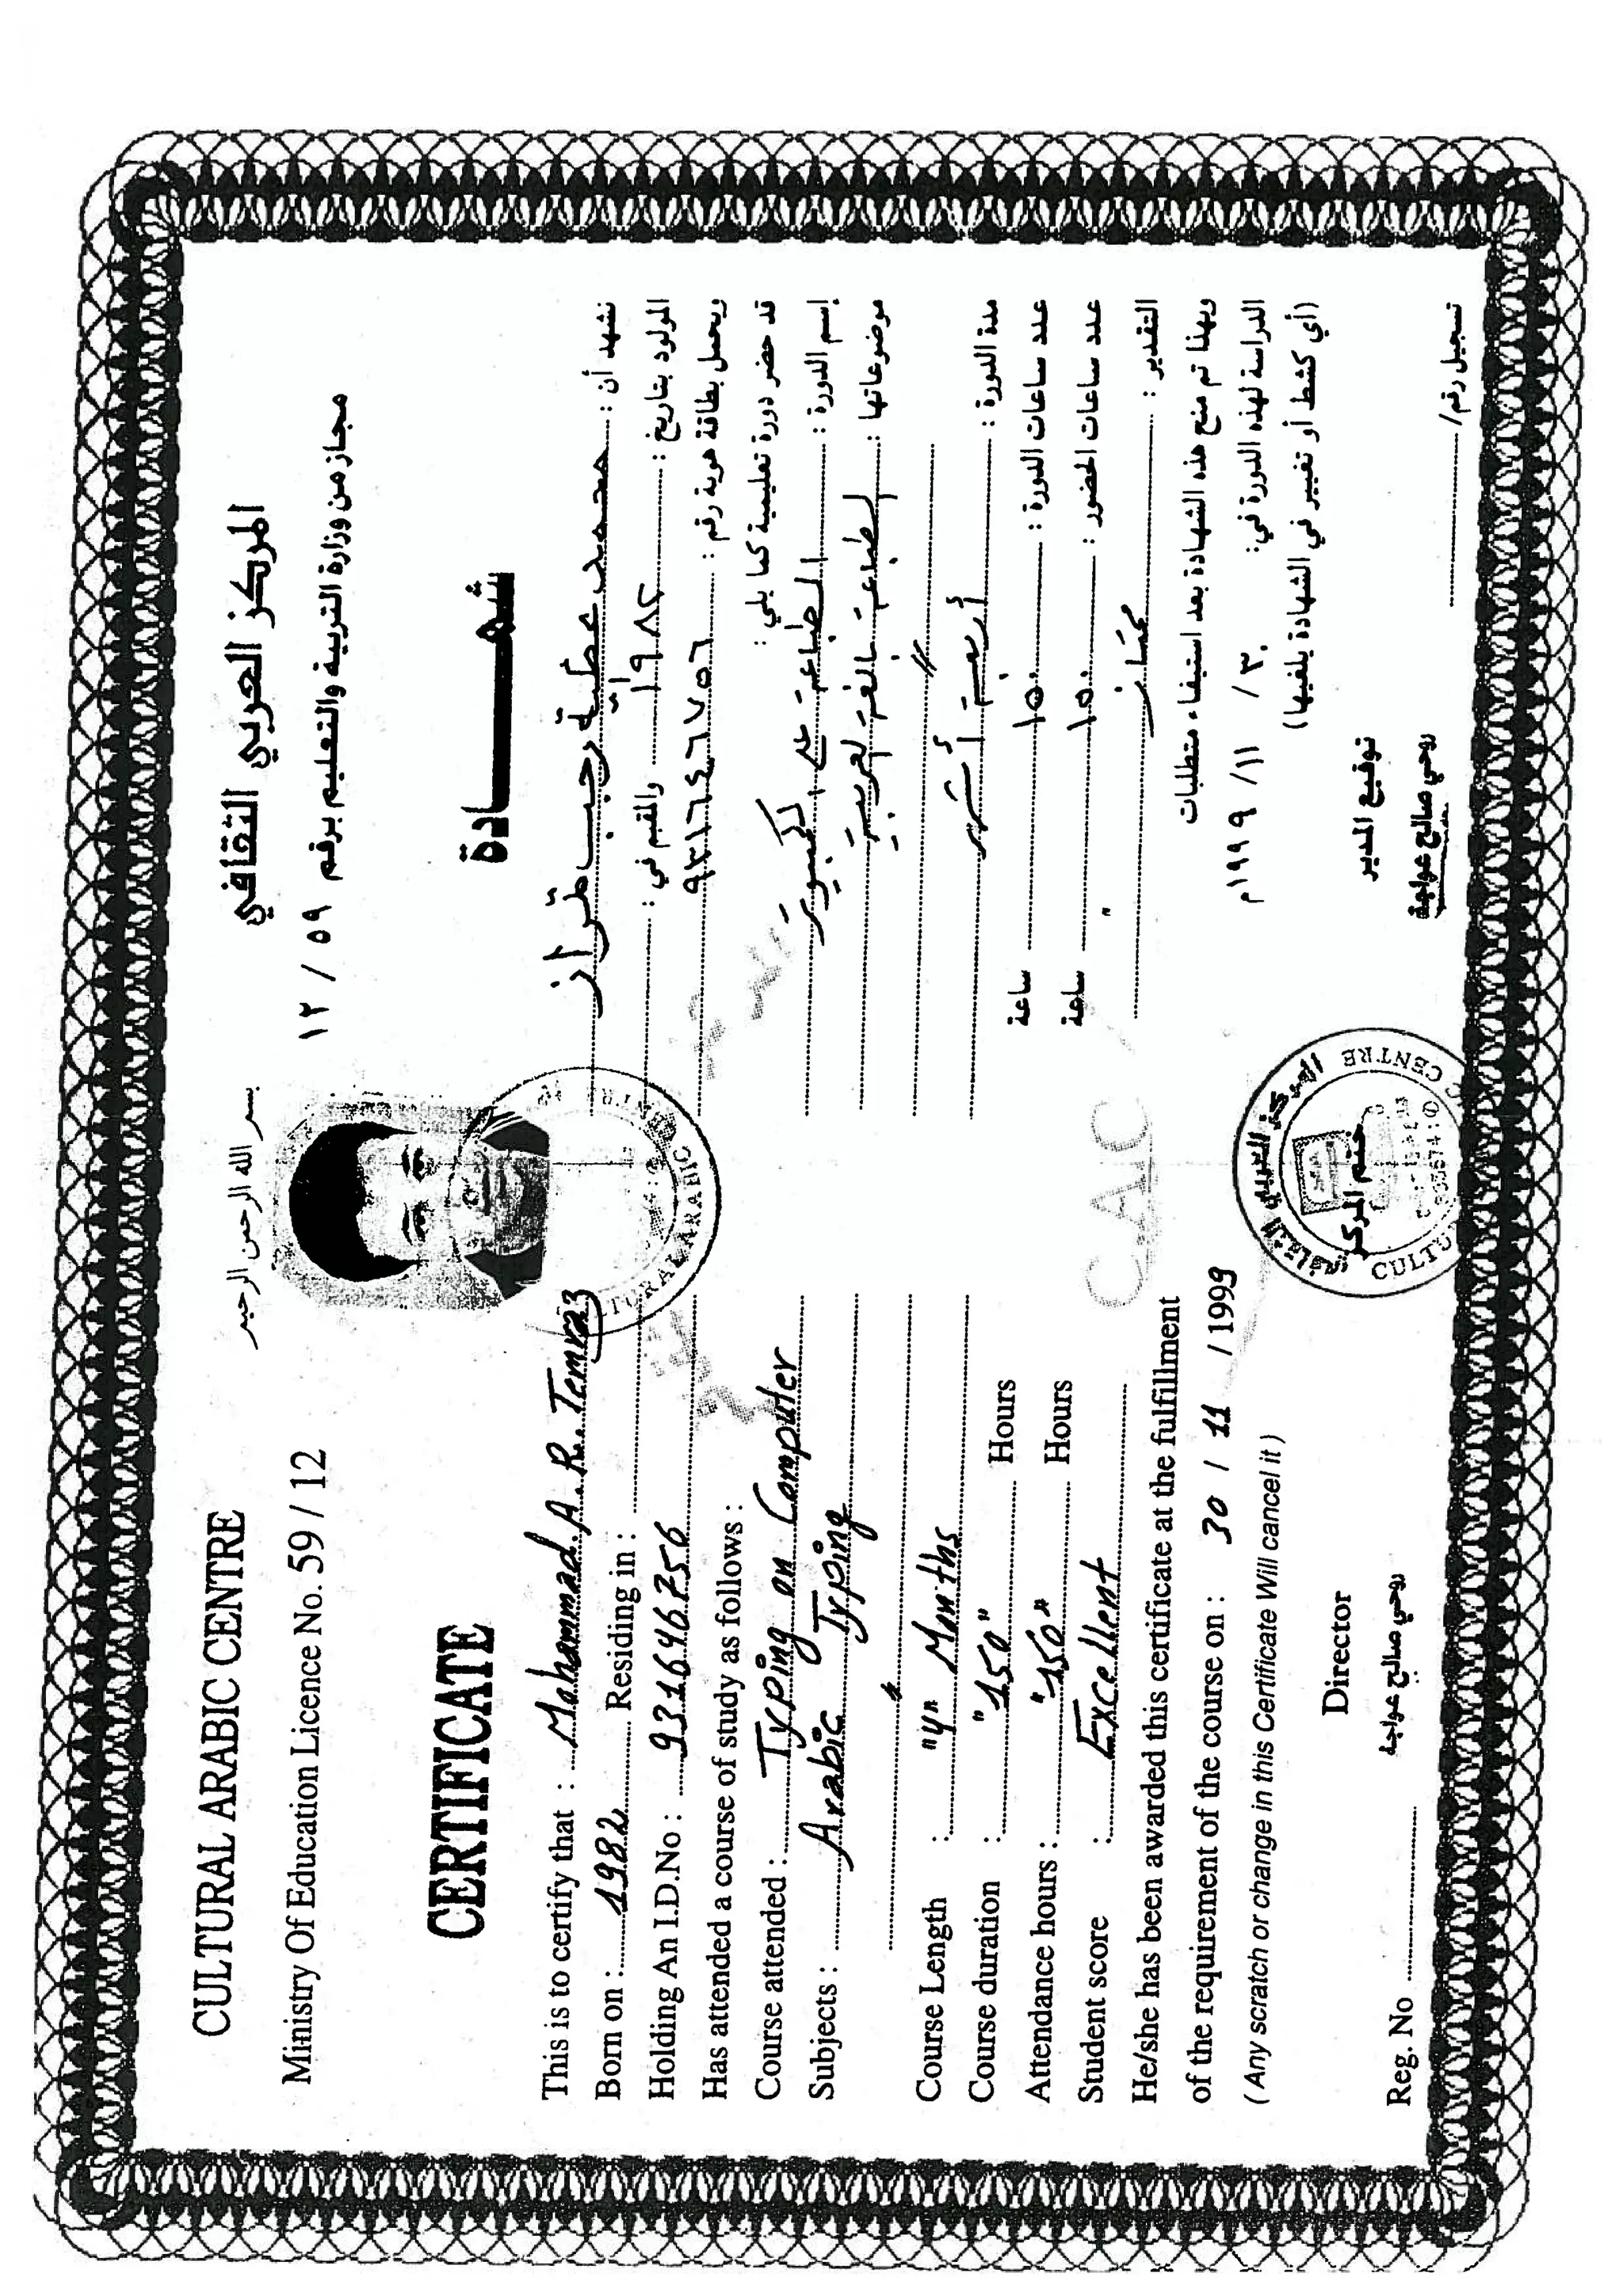 بسم الله الرحمن الرحيم
CULTURAL ARABIC CENTRE
Ministry Of Education Licence No. 59 / 12
CERTIFICATE
This is to certify that : Mohammad. A. R. Temraz
Born on : 1982 Residing in :
Holding An I.D.No : 931646756
Has attended a course of study as follows :
Course attended : Typing on Computer
Subjects : Arabic Typing
Course Length : "4" Months
Course duration : "150" Hours
Attendance hours : "150" Hours
Student score : Excellent
He/she has been awarded this certificate at the fulfillment
of the requirement of the course on : 30 / 11 / 1999
( Any scratch or change in this Certificate Will cancel it )
Director
روحي صالح عواجة
Reg. No
المركز العربي الثقافي
مجاز من وزارة التربية والتعليم برقم ٥٩ / ١٢
شهادة
نشهد أن : محمد عطية رجب تمراز
المولود بتاريخ : ١٩٨٢ والمقيم في :
ويحمل بطاقة هوية رقم : ٩٣١٦٤٦٧٥٦
قد حضر دورة تعليمية كما يلي :
إسم الدورة : الطباعة على الكمبيوتر
موضوعاتها : الطباعة باللغة العربية
مدة الدورة : أربعة أشهر
عدد ساعات الدورة : ١٥٠ ساعة
عدد ساعات الحضور : ١٥٠ ساعة
التقدير : ممتاز
وبهذا تم منح هذه الشهادة بعد استيفاء متطلبات
الدراسة لهذه الدورة في : ٣٠ / ١١ / ١٩٩٩م
(أي كشط أو تغيير في الشهادة يلغيها)
توقيع المدير
روحي صالح عواجة
تسجيل رقم /
ختم المركز
CAC